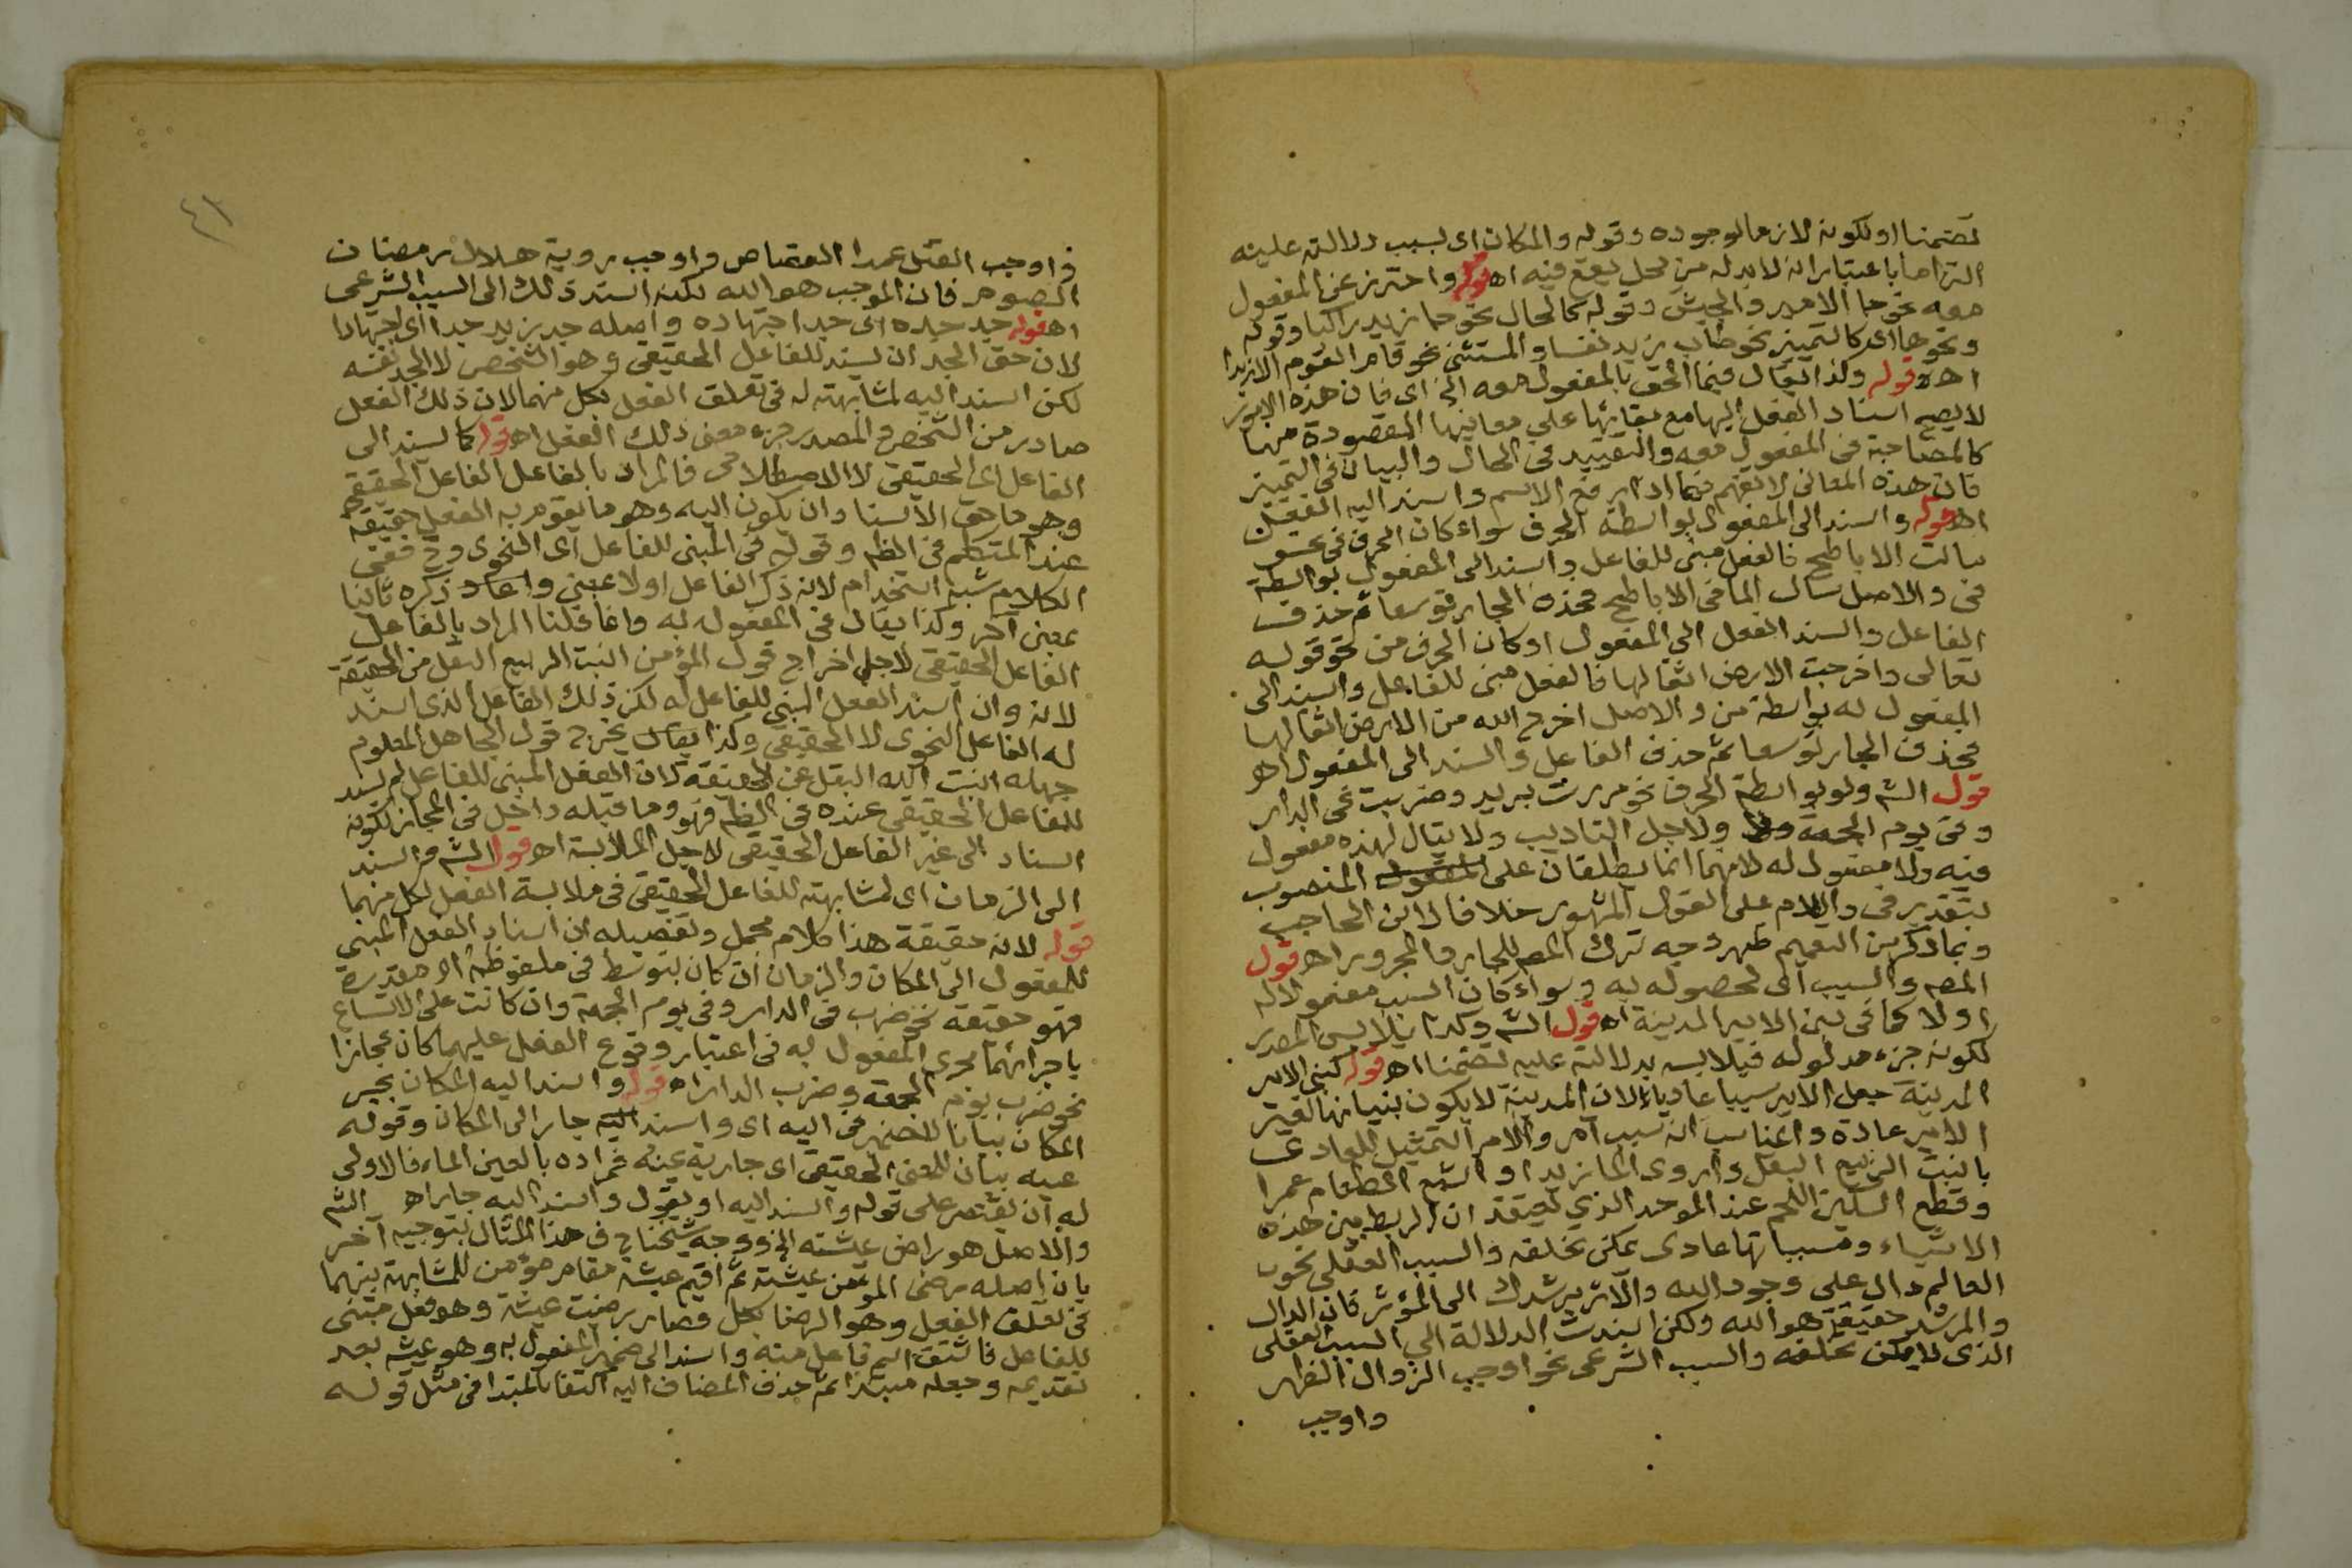 تضمنا او لكونه لازما لوجوده وقوله والمكان اى بسبب دلالته عليه
التزاما باعتبار انه لا بد له من محل يقع فيه اهـ قوله واحترز عن المفعول
معه نحو جا الامير والجيش وقوله كالحال نحو جا زيد راكبا وقوله
ونحوها اى كالتمييز نحو طاب زيد نفسا والمستثنى نحو قام القوم الا زيدا
اهـ قوله وكذا يقال فيما الحق بالمفعول معه الخ اى فان هذه الامور
لا يصح اسناد الفعل اليها مع بقائها على معانيها المقصودة منها
كالمصاحبة فى المفعول معه والتقييد فى الحال والبيان فى التمييز
فان هذه المعانى لا تفهم فيما اذا رفع الاسم واسند اليه الفعل
اهـ قوله واسند الى المفعول بواسطة الحرف سواء كان الحرف فى نحو
سالت الاباطح فالفعل مبنى للفاعل واسند الى المفعول بواسطة
فى والاصل سال الما فى الاباطح فحذف الجار توسعا ثم حذف
الفاعل واسند الفعل الى المفعول او كان الحرف من نحو قوله
تعالى واخرجت الارض اثقالها فالفعل مبنى للفاعل واسند الى
المفعول له بواسطة من والاصل اخرج الله من الارض اثقالها
فحذف الجار توسعا ثم حذف الفاعل واسند الى المفعول اهـ
قول الشـ ولو بواسطة الحرف نحو مررت بزيد وضربت فى الدار
وفى يوم الجمعة ولاجل التاديب ولا يقال لهذه مفعول
فيه ولا مفعول له لانهما انما يطلقان على المنصوب
بتقدير فى واللام على القول المشهور خلافا لابن الحاجب
وبما ذكر من التعميم ظهر وجه ترك المصـ للجار والمجرور اهـ قول
المصـ والسبب اى لحصوله به وسواء كان السبب مفعولا له
او لا كما فى بنى الامير المدينة اهـ قول الشـ وكذا يلابس المصدر
لكونه جزء مدلوله فيلابسه بدلالته عليه تضمنا اهـ قوله كبنى الامير
المدينة جعل الامير سببا عاديا لان المدينة لا يكون بنيانها لغير
الامير عادة والمناسب انه سبب آمر والامر التمثيل للعادى
بانبت الربيع البقل واروى الما زيدا واشبع الطعام عمرا
وقطع السكين اللحم عند الموحد الذي يعتقد ان الربط بين هذه
الاشياء ومسبباتها عادى يمكن تخلفه والسبب العقلى نحو
العالم دال على وجود الله والاثر يرشدك الى المؤثر فان الدال
والمرشد حقيقة هو الله ولكن اسندت الدلالة الى السبب العقلى
الذى لا يمكن تخلفه والسبب الشرعى نحو اوجب الزوال الظهر
واوجب
٤١
واوجب القتل عمدا القصاص واوجب روية هلال رمضان
الصوم فان الموجب هو الله لكنه اسند ذلك الى السبب الشرعى
اهـ قوله جد جده اى جد اجتهاده واصله جد زيد جدا اى اجتهادا
لان حق الجد ان يسند للفاعل الحقيقى وهو الشخص لا الجد نفسه
لكن اسند اليه لمشابهته له فى تعلق الفعل بكل منهما لان ذلك الفعل
صادر من الشخص والمصدر جزء معنى ذلك الفعل اهـ قوله كاسند الى
الفاعل اى الحقيقى لا الاصطلاحى فالمراد بالفاعل الفاعل الحقيقى
وهو ما حق الاسناد ان يكون اليه وهو ما يقوم به الفعل حقيقة
عند المتكلم فى الظـ وقوله فى المبنى للفاعل اى النحوى وح ففى
الكلام شبه استخدام لانه ذكر الفاعل اولا بمعنى واعاد ذكره ثانيا
بمعنى آخر وكذا يقال فى المفعول به وانما قلنا المراد بالفاعل
الفاعل الحقيقى لاجل اخراج قول المؤمن انبت الربيع البقل من الحقيقة
لانه وان اسند الفعل المبنى للفاعل له لكن ذلك الفاعل الذى اسند
له الفاعل النحوى لا الحقيقى وكذا يقال يخرج قول الجاهل المعلوم
جهله انبت الله البقل عن الحقيقة لان الفعل المبنى للفاعل لم يسند
للفاعل الحقيقى عنده فى الظـ فهو وما قبله داخل فى المجاز لكونه
اسناد الى غير الفاعل الحقيقى لاجل الملابسة اهـ قول الشـ واسند
الى الزمان اى لمشابهته للفاعل الحقيقى فى ملابسة الفعل لكل منهما
قوله لانه حقيقة هذا كلام مجمل وتفصيله ان اسناد الفعل المبنى
للمفعول الى المكان والزمان ان كان بتوسط فى ملفوظة او مقدرة
فهو حقيقة نحو ضرب فى الدار وفى يوم الجمعة وان كانت على الاتساع
باجرائهما مجرى المفعول به فى اعتبار وقوع الفعل عليهما كان مجازا
نحو ضرب يوم الجمعة وضرب الدار اهـ قوله واسند اليه المكان بجر
المكان بيانا للضمير فى اليه اى واسند جار الى المكان وقوله
عينه بيان للمعنى الحقيقى اى جارية عينه فمراده بالعين الماء فالاولى
له ان يقتصر على قوله واسند اليه او يقول واسند اليه جار اهـ الشـ
والاصل هو راض عيشته الخ ووجه شيخنا ح فى هذا المثال بتوجيه آخر
بان اصله رضى المؤمن عيشته ثم اقيم عيشة مقام مؤمن للمشابهة بينهما
فى تعلق الفعل وهو الرضا بكل فصار رضيت عيشة وهو فعل مبنى
للفاعل فاشتق اسم فاعل منه واسند الى ضمير المفعول به وهو عيشه بعد
تقديمه وجعله مبتدا ثم حذف المضاف اليه اكتفا بالمبتدا فى مثل قوله